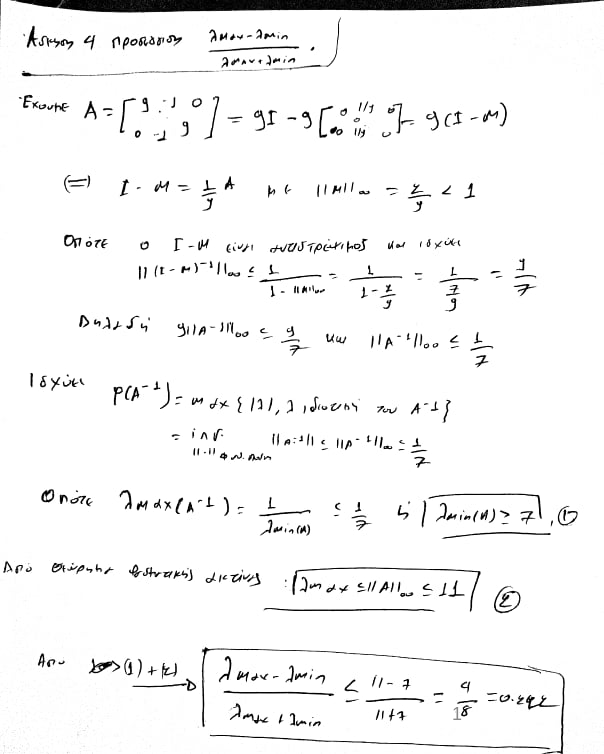 Άσκηση 4 προσδιορ λmax-λmin / λmax+λmin .
Έχουμε A = [9 -1 0 0 -1 9] = 9I - 9[0 1/9 0 0 1/9 0] = 9(I-M)
(=) I - M = 1/9 A με ||M||∞ = 2/9 < 1
Οπότε ο I-M είναι αντιστρέψιμος και ισχύει
||(I-M)^-1||∞ ≤ 1/(1-||M||∞) = 1/(1-2/9) = 1/(7/9) = 9/7
Δηλαδή 9||A^-1||∞ ≤ 9/7 και ||A^-1||∞ ≤ 1/7
Ισχύει ρ(A^-1) = max {|λ|, λ ιδιοτιμή του A^-1}
= inf ||A^-1|| ≤ ||A^-1||∞ ≤ 1/7
||·|| φυσ.
Οπότε λmax(A^-1) = 1/λmin(A) ≤ 1/7 ή λmin(A) ≥ 7, (1)
Από : λmax ≤ ||A||∞ ≤ 11 (2)
Από (1)+(2) λmax-λmin / λmax+λmin ≤ 11-7 / 11+7 = 4/18 = 0.222